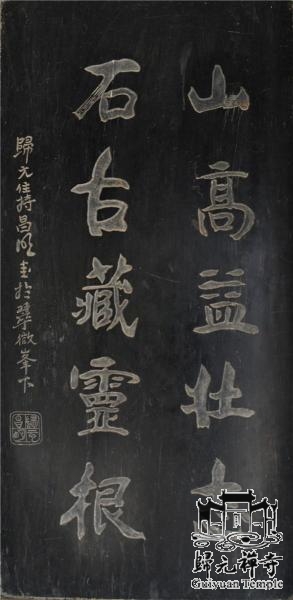 山高益壯
石古藏靈根
歸元住持昌明書於翠微峯下
歸元禪寺
Guiyuan Temple